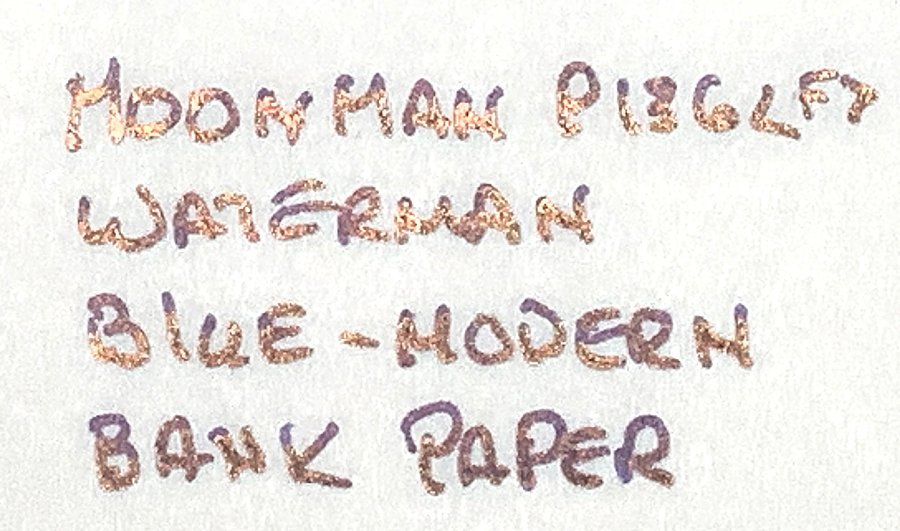 MOONMAN PIGGLET
WATERMAN
BlUE-MODERN
BANK PAPER